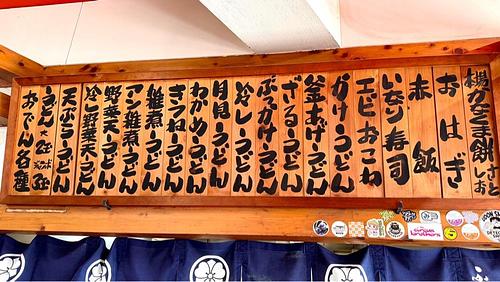 揚カンさき餅しお
おはぎ
赤飯
いなり寿司
エビおこわ
かけうどん
釜あげうどん
ざるうどん
ぶっかけうどん
冷しうどん
月見うどん
わかめうどん
きつねうどん
雑煮うどん
アン雑煮うどん
野菜天うどん
冷し野菜天うどん
天ぷらうどん
うどん大2玉
おでん各種